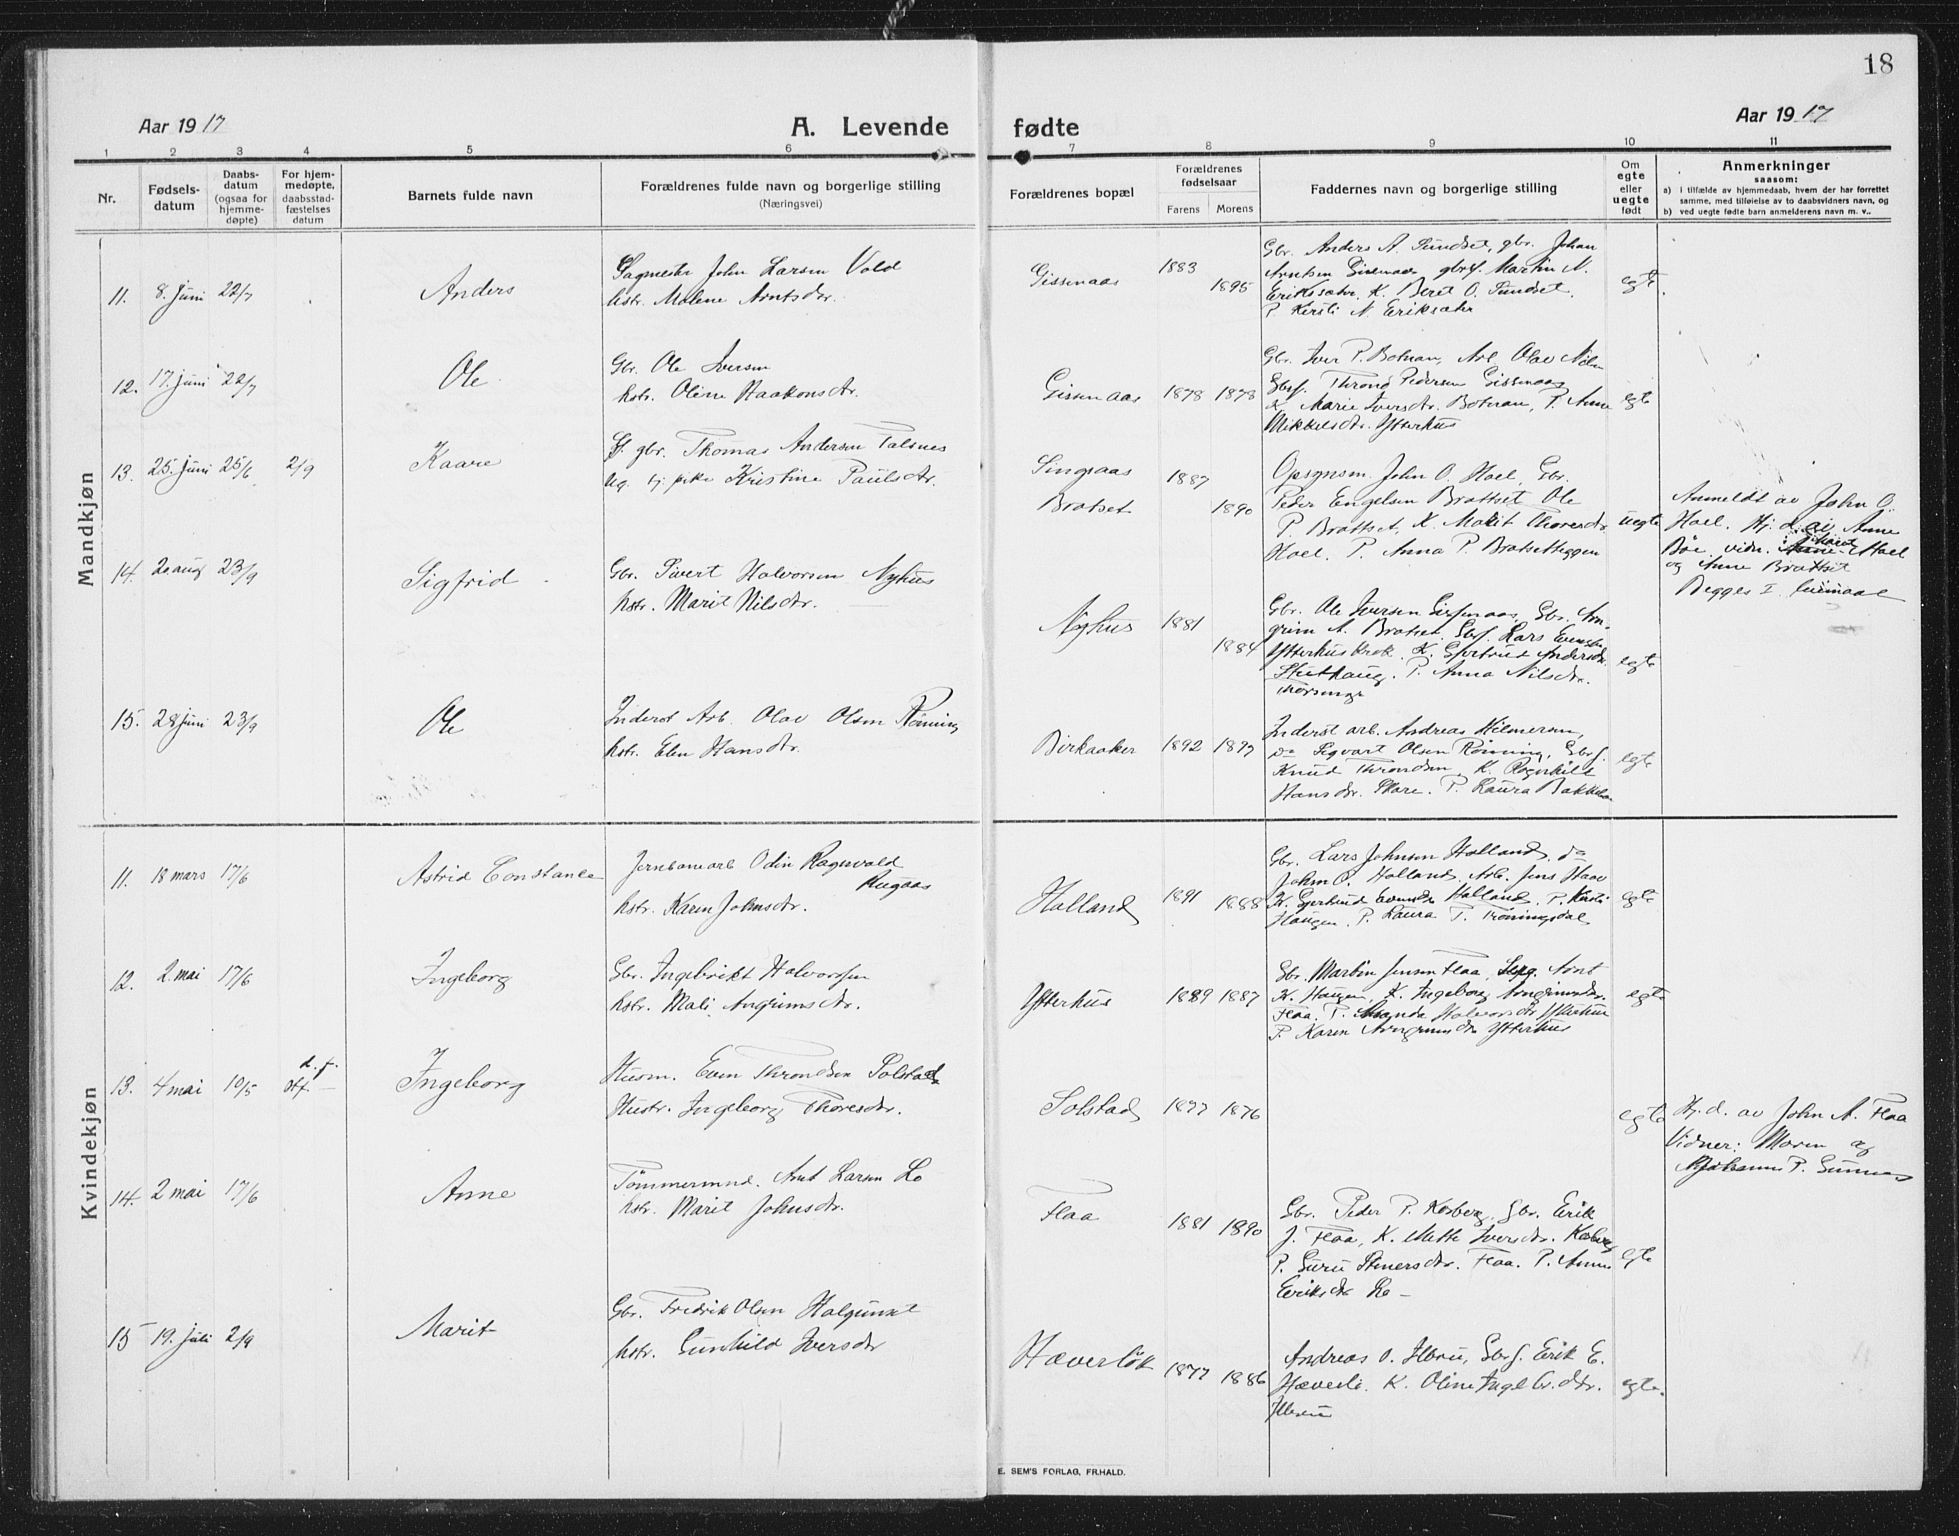 18
Aar 1917
A. Levende fødte
Aar 1917
1 2 3 4 5 6 7 8 9 10 11
Nr.
Fødsels-
datum
Daabs-
datum
(ogsaa for
hjemme-
døpte)
For hjem-
medøpte,
daabsstad-
fæstelses
datum
Barnets fulde navn
Forældrenes fulde navn og borgerlige stilling
(Næringsvei)
Forældrenes bopæl
Forældrenes
fødselsaar
Farens Morens
Faddernes navn og borgerlige stilling
Om
egte
eller
uegte
født
Anmerkninger
saasom:
a) i tilfælde av hjemmedaab, hvem der har forrettet
samme, med tilføielse av to daabsvidners navn, og
b) ved uegte fødte barn anmelderens navn m. v..
Mandkjøn
11. 8. juni 22/7 Anders
Sagmester John Larsen Vold
hstr. Malene Arntsdr.
Gissenaas 1883 1895
Gbr. Anders A. Sundset, gbr. Johan
Arntsen Gissenaas gbrs. Martin N.
Eriksæhr. K. Beret O. Sundset.
P. Kersti N. Eriksæhr
egte.
12. 17. juni 22/7 Ole
Gbr. Ole Iversen
hstr. Oline Haakonsdr.
Gissenaas 1878 1878
Gbr. Iver P. Botnan, Arb. Olav Nilsen
Gbrs. Thrond Pedersen Gissenaas
K. Marie Iversdr. Botnan, P. Anne
Mikkelsdr. Ytterhus
egte
13. 25. juni 25/6 2/9 Kaare
gbr. Thomas Andersen Talsnes
Ug. tj. pike Kristine Paulsdr.
Singsaas 1887
Bratset 1890
Opsynsm. John O. Hoel, Gbr.
Peder Engelsen Brattset Ole
P. Brattset, K. Marit Thoresdr.
Hoel. P. Anna P. Bratsetheggen
uegte
Anmeldt av John O.
Hoel. Hj. d. av Anne
Böe. vidn. Marit Hoel
og Anne Brattset
Begges I. leiemaal
14. 20 aug 23/9 Sigfrid
Gbr. Sivert Halvorsen Nyhus
hstr. Marit Nilsdr.
Nyhus 1881 1884
Gbr. Ole Iversen Gissenaas, Gbr. Arn-
grim A. Bratset. Gbs. Lars Evensen
Ytterhuskrok. K. Gjertrud Andersdr.
Stuthaug. P. Anna Nilsdr.
egte
15. 28 juni 23/9 Ole
Inderst Arb. Olav Olsen Rönning
hstr. Elen Hansdr.
Birkaaker 1892 1897
Inderst arb. Andreas Hilmersen,
do Sigvart Olsen Rönning, Gbrs.
Knud Throndsen K. Ragnhild
Hansdr. Skare. P. Laura Bakken
egte
Kvindekjøn
11. 18 mars 17/6 Astrid Constance
Jernbanearb Odin Ragnvald
Rugaas
hstr. Karen Johnsdr.
Holland 1891 1888
Gbr. Lars Johnsen Holland, do
John O. Holland. Arb. Jens Haav
K. Gjertrud Holland. P. Kersti
Haugen. P. Laura T. Tröningsdal
egte
12. 2. mai 17/6 Ingeborg
Gbr. Ingebrikt Halvorsen
hstr. Mali Arngrimsdr.
Ytterhus 1889 1887
Gbr. Martin Jensen Flaa, Arnt
K. Haugen, K. Ingeborg Arngrimsdr.
Flaa. P. Halvorsdr Ytterhus
P. Karen Arngrimsdr Ytterhus
egte
13. 4 mai 10/5 Ingeborg
d. f.
stf. —
Husm. Even Throndsen Solstad
Hustr. Ingeborg Thoresdr.
Solstad 1877 1876
egte
Hj. d. av John A. Flaa
Vidner: Maren og
Johannes P. Gunnes
14. 2 mai 17/6 Anne
Tömmermnd. Arnt Larsen Lo
hstr. Marit Johnsdr.
Flaa 1881 1890
Gbr. Peder P. Korberg, Gbr. Erik
J. Flaa, K. Mette Iversdr. Korberg
P. Guru Steinersdr. Flaa. P. Anne
Eriksdr Lo —
egte
15 19. juli 2/9 Marit
Gbr. Fredrik Olsen Halgunset
hstr. Gunhild Iversdr
Hæverlök 1877 1886
Andreas O. Ilbru, Gbrs. Erik E.
Hæverli. K. Oline Ingebr.dtr.
egte.
E. SEM'S FORLAG, FR.HALD.